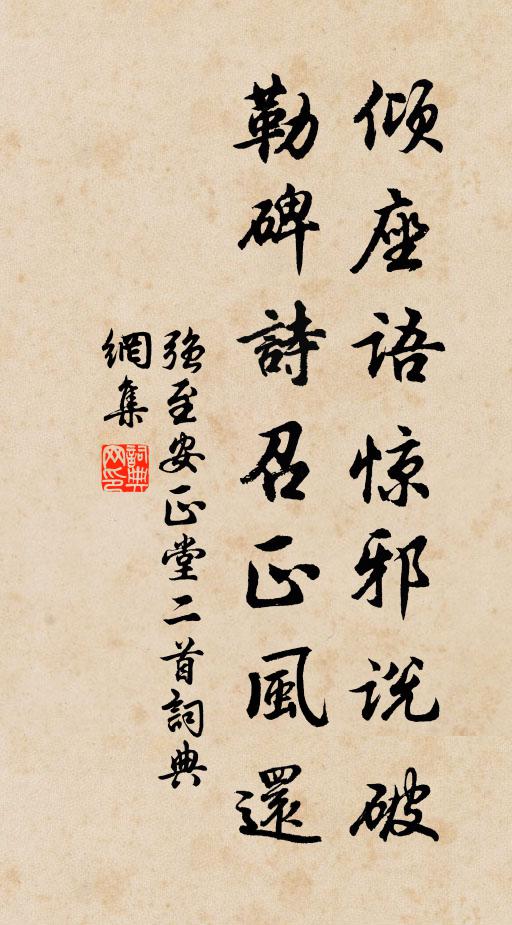 倾座语惊邪说破
勒碑詩召正風還
强至安正堂二首詞典
網集
詞典
网印